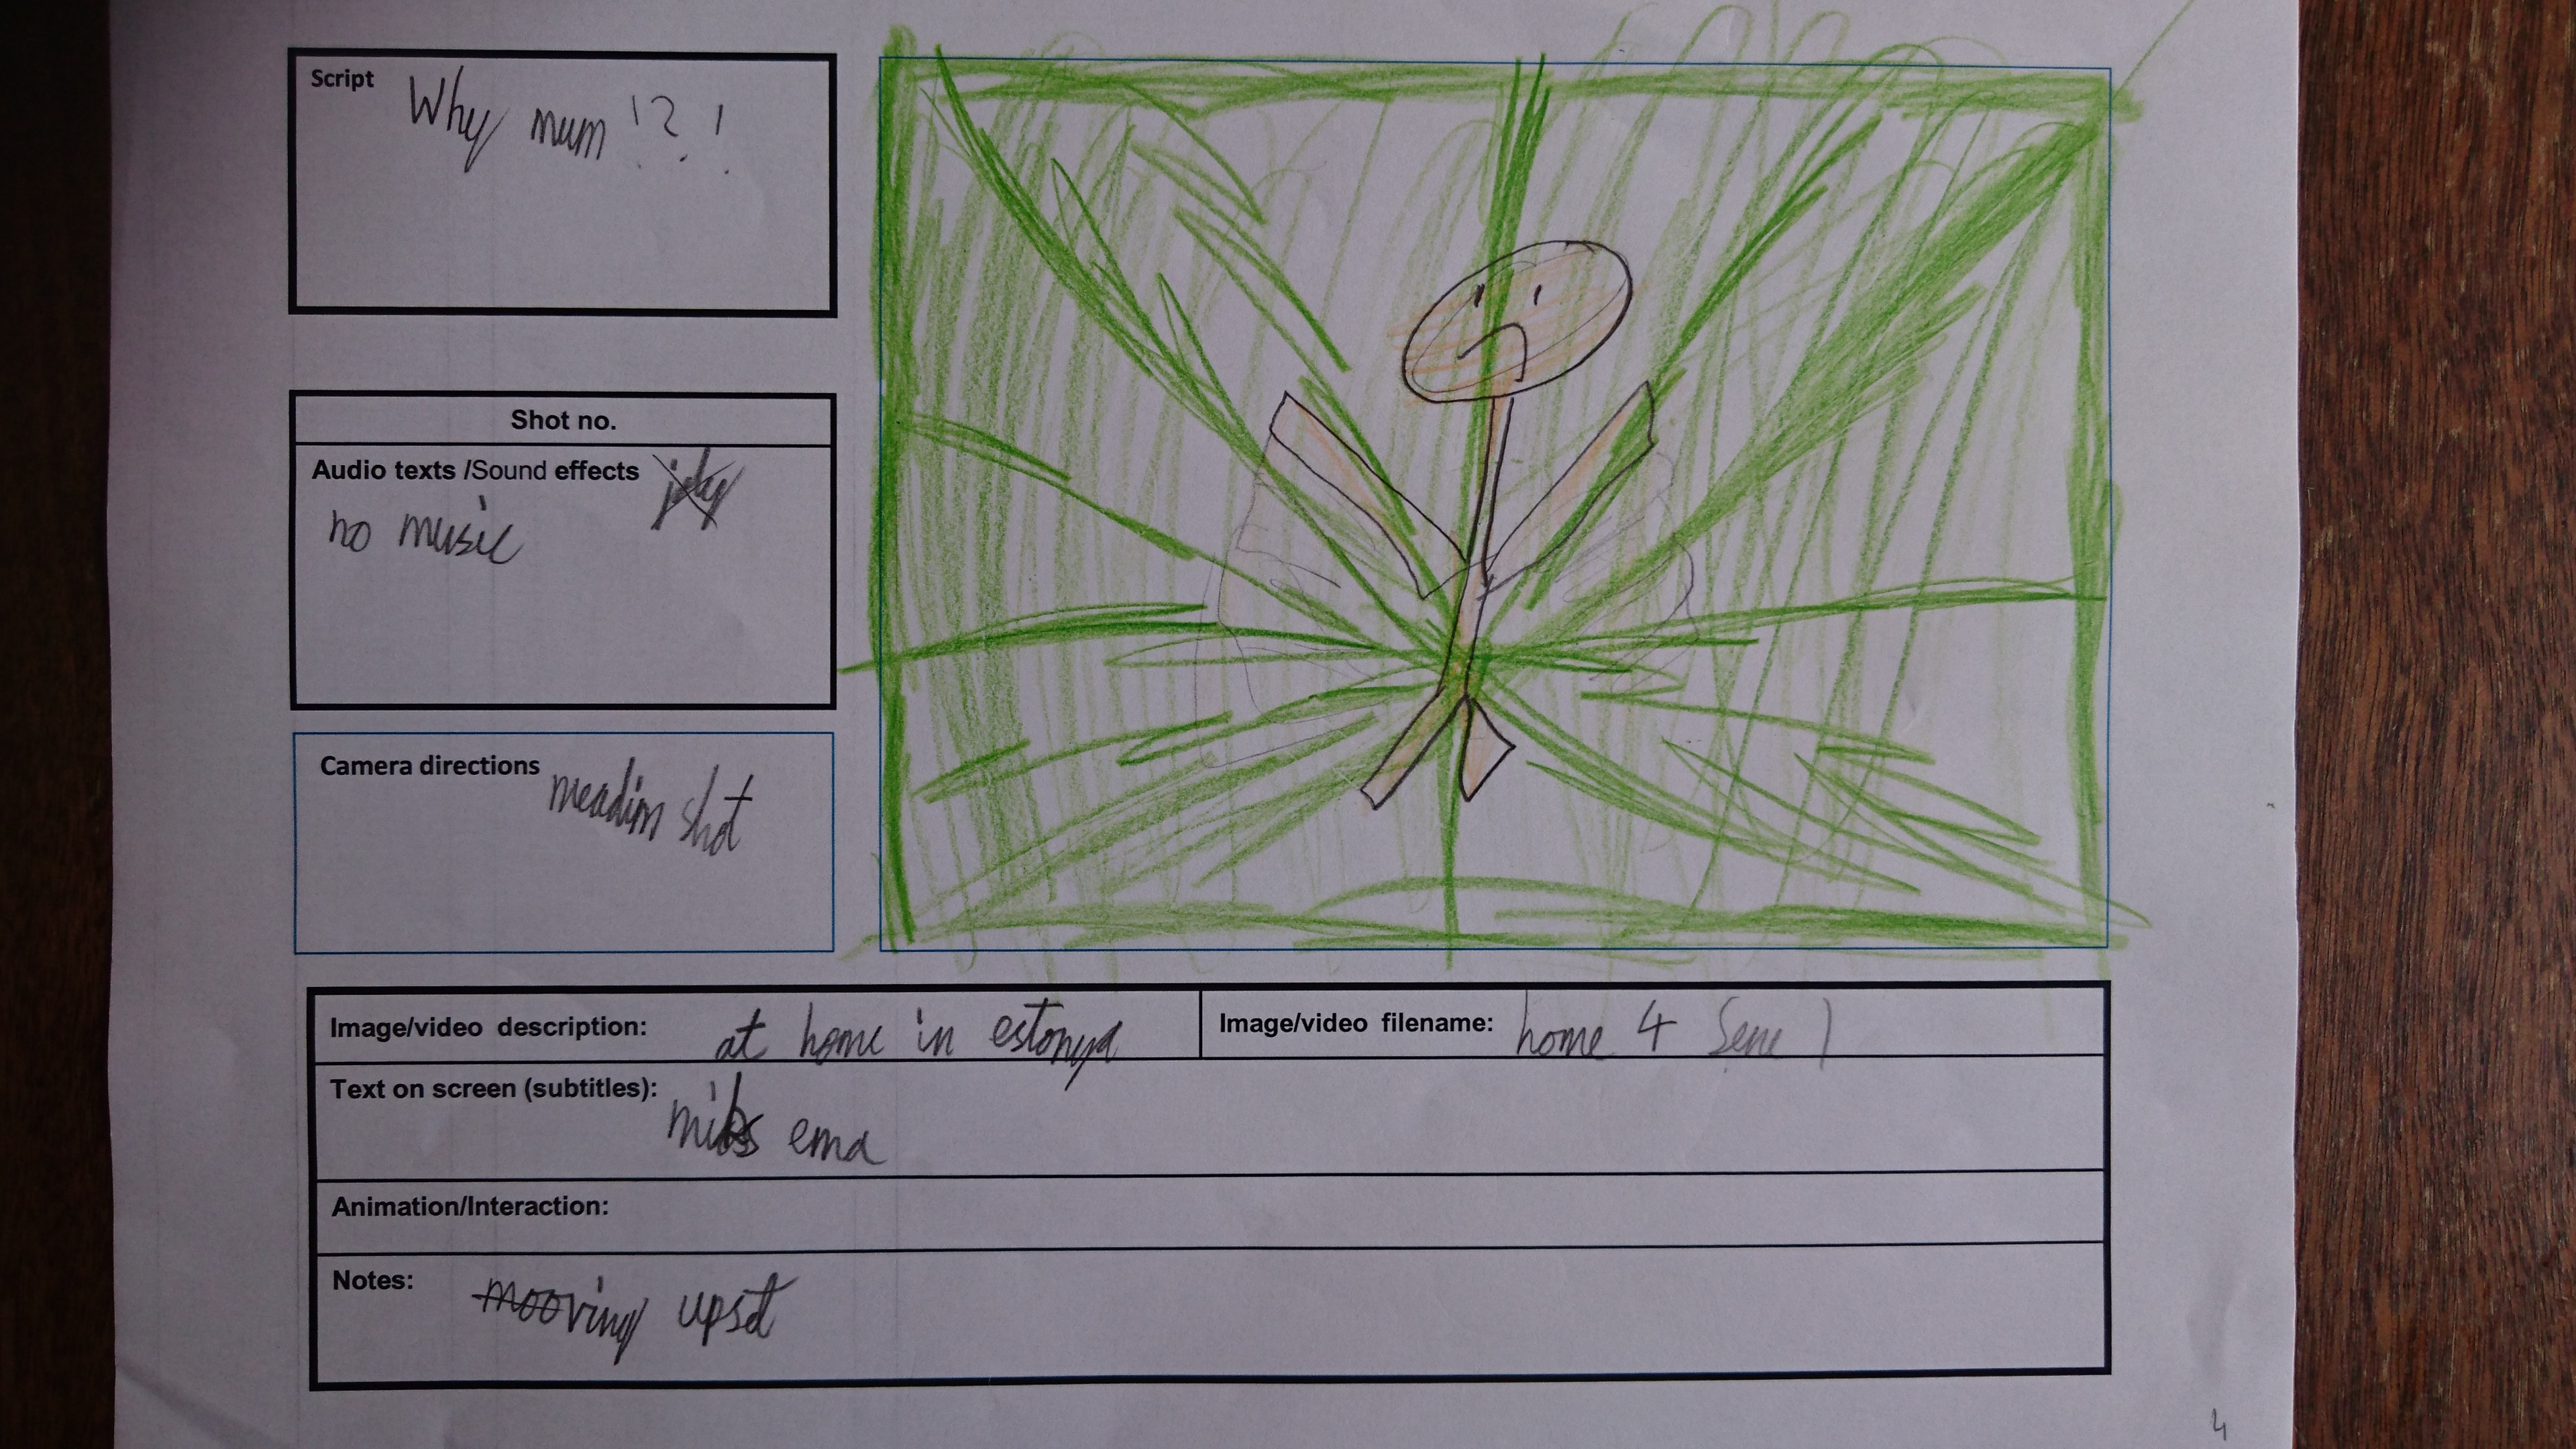 Script Why mum !?!
Shot no.
Audio texts /Sound effects
no music
Camera directions meadim shot
Image/video description: at home in estonya
Image/video filename: home 4 Sene 1
Text on screen (subtitles):
miks ema
Animation/Interaction:
Notes: mooving upset
4